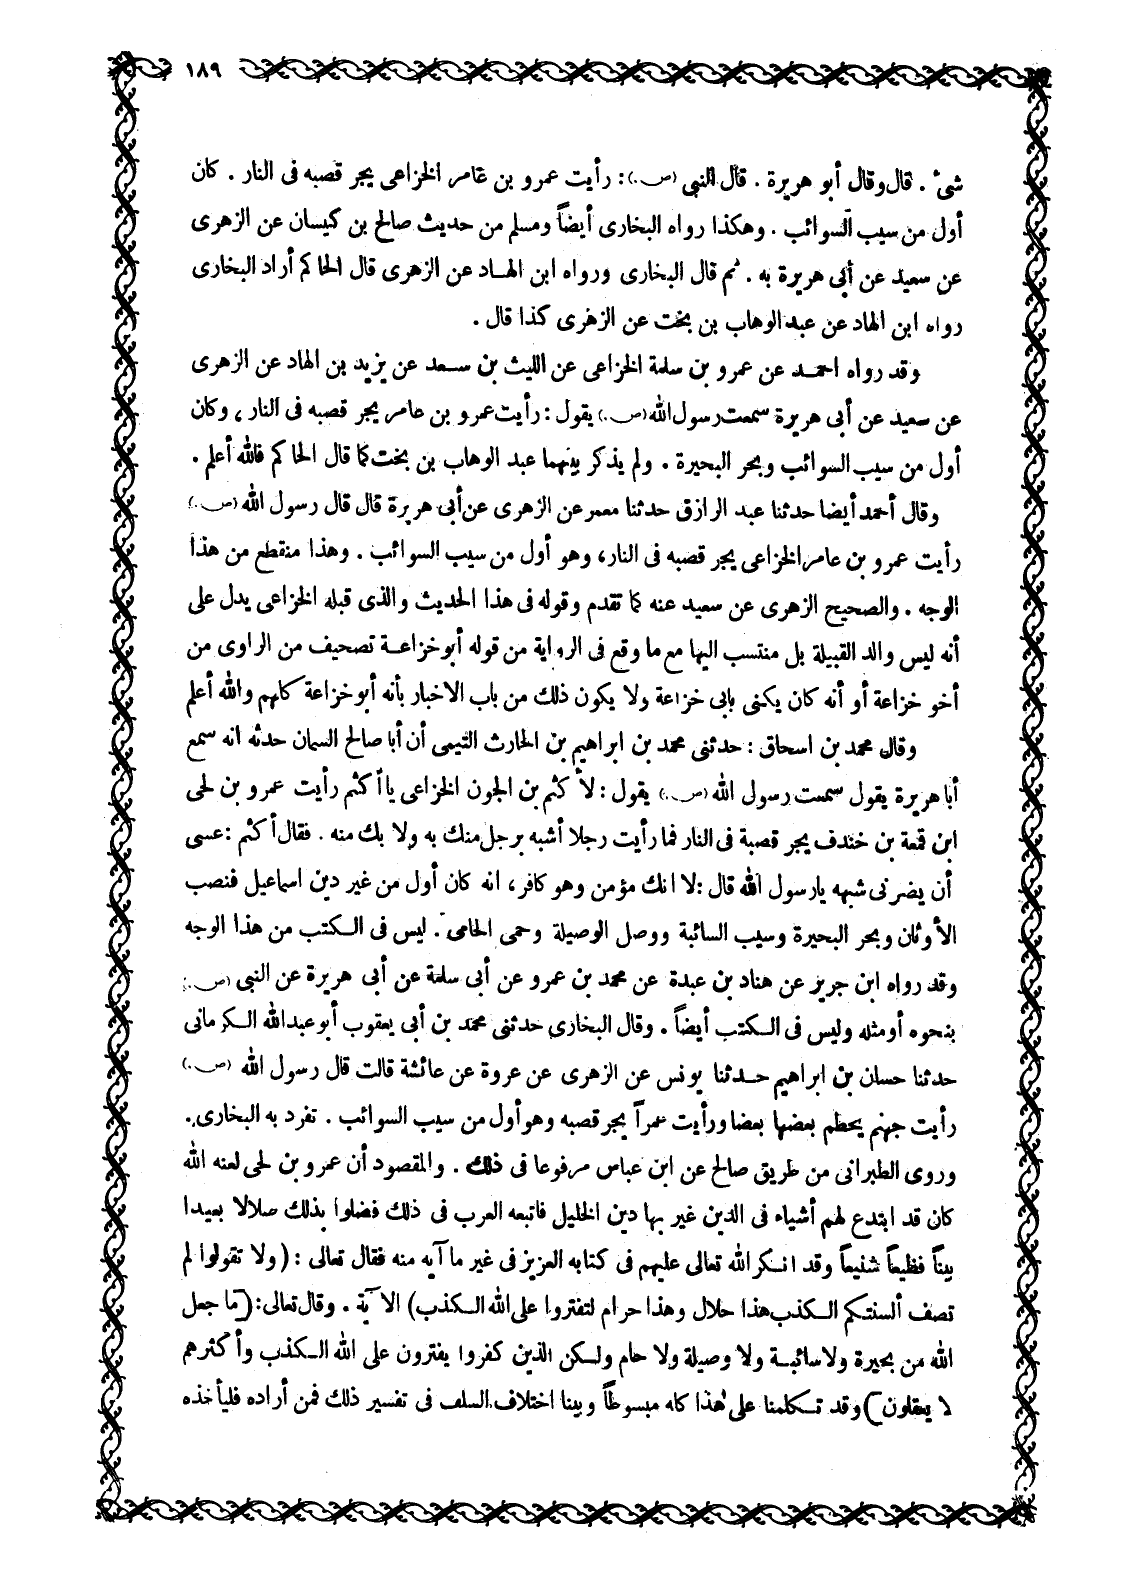 ١٨٩
شىء . قال وقال أبو هريرة . قال النبي (ص.): رأيت عمرو بن عامر الخزاعى يجر قصبه فى النار . كان
أول من سيب السوائب . وهكذا رواه البخارى أيضاً ومسلم من حديث صالح بن كيسان عن الزهرى
عن سعيد عن أبى هريرة به . ثم قال البخارى ورواه ابن الهاد عن الزهرى قال الحاكم أراد البخارى
رواه ابن الهاد عن عبد الوهاب بن بخت عن الزهرى كذا قال .
وقد رواه احمد عن عمرو بن سلمة الخزاعى عن الليث بن سعد عن يزيد بن الهاد عن الزهرى
عن سعيد عن أبى هريرة سمعت رسول الله (ص.) يقول : رأيت عمرو بن عامر يجر قصبه فى النار ، وكان
أول من سيب السوائب وبحر البحيرة . ولم يذكر بينهما عبد الوهاب بن بخت كما قال الحاكم فالله أعلم .
وقال أحمد أيضا حدثنا عبد الرازق حدثنا معمر عن الزهرى عن أبى هريرة قال قال رسول الله (ص.)
رأيت عمرو بن عامر الخزاعى يجر قصبه فى النار ، وهو أول من سيب السوائب . وهذا منقطع من هذا
الوجه . والصحيح الزهرى عن سعيد عنه كما تقدم وقوله فى هذا الحديث والذى قبله الخزاعى يدل على
أنه ليس والد القبيلة بل منتسب اليها مع ما وقع فى الرواية من قوله أبو خزاعة تصحيف من الراوى من
أخو خزاعة أو أنه كان يكنى بابى خزاعة ولا يكون ذلك من باب الاخبار بأنه أبو خزاعة كلهم والله أعلم
وقال محمد بن اسحاق : حدثنى محمد بن ابراهيم بن الحارث التيمى أن أبا صالح السمان حدثه انه سمع
أبا هريرة يقول سمعت رسول الله (ص.) يقول : لأكثم بن الجون الخزاعى يا أكثم رأيت عمرو بن لحى
ابن قمعة بن خندف يجر قصبة فى النار فما رأيت رجلا أشبه برجل منك به ولا بك منه . فقال أكثم : عسى
أن يضرنى شبهه يارسول الله قال : لا انك مؤمن وهو كافر ، انه كان أول من غير دين اسماعيل فنصب
الأوثان وبحر البحيرة وسيب السائبة ووصل الوصيلة وحمى الحامى . ليس فى الكتب من هذا الوجه
وقد رواه ابن جرير عن هناد بن عبدة عن محمد بن عمرو عن أبى سلمة عن أبى هريرة عن النبى (ص.)
بنحوه أو مثله وليس فى الكتب أيضاً . وقال البخارى حدثنى محمد بن أبى يعقوب أبو عبد الله الكرمانى
حدثنا حسان بن ابراهيم حدثنا يونس عن الزهرى عن عروة عن عائشة قالت قال رسول الله (ص.)
رأيت جهنم يحطم بعضها بعضا ورأيت عمراً يجر قصبه وهو أول من سيب السوائب . تفرد به البخارى.
وروى الطبرانى من طريق صالح عن ابن عباس مرفوعا فى ذلك . والمقصود أن عمرو بن لحى لعنه الله
كان قد ابتدع لهم أشياء فى الدين غير بها دين الخليل فاتبعه العرب فى ذلك فضلوا بذلك ضلالا بعيدا
بيناً فظيعاً شنيعاً وقد انكر الله تعالى عليهم فى كتابه العزيز فى غير ما آيه منه فقال تعالى : (ولا تقولوا لم
تصف ألسنتكم الكذب هذا حلال وهذا حرام لتفتروا على الله الكذب) الآية . وقال تعالى: (ما جعل
الله من بحيرة ولا سائبة ولا وصيلة ولا حام ولكن الذين كفروا يفترون على الله الكذب وأكثرهم
لا يعقلون) وقد تكلمنا على هذا كله مبسوطاً وبينا اختلاف السلف فى تفسير ذلك فمن أراده فليأخذه